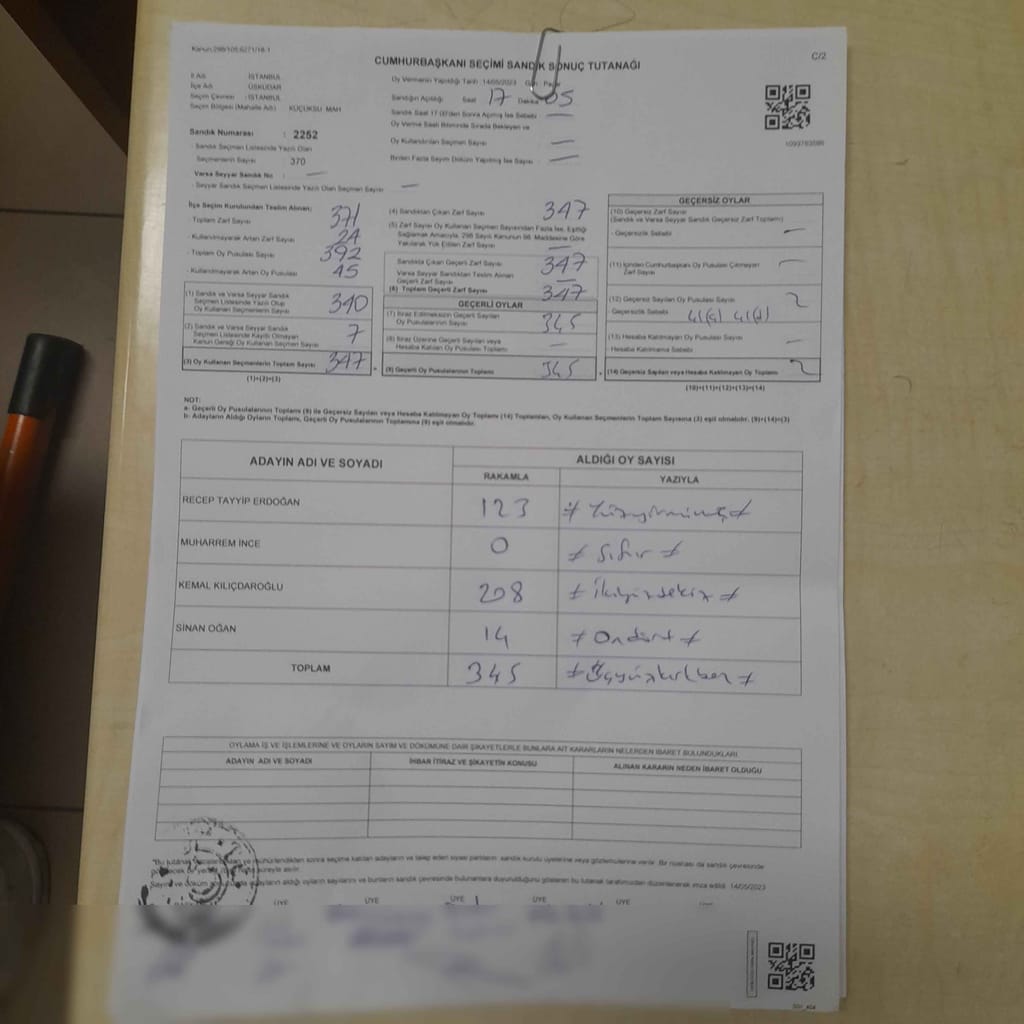 Kanun:298/105;6271/18-1
C/2
CUMHURBAŞKANI SEÇİMİ SANDIK SONUÇ TUTANAĞI
İl Adı : İSTANBUL
İlçe Adı : ÜSKÜDAR
Seçim Çevresi : İSTANBUL
Seçim Bölgesi (Mahalle Adı) : KÜÇÜKSU MAH
Sandık Numarası : 2252
- Sandık Seçmen Listesinde Yazılı Olan
Seçmenlerin Sayısı : 370
Varsa Seyyar Sandık No : —
- Seyyar Sandık Seçmen Listesinde Yazılı Olan Seçmen Sayısı —
Oy Vermenin Yapıldığı Tarih :14/05/2023 Gün : Pazar
Sandığın Açıldığı Saat 17 Dakika 05
Sandık Saat 17:00'den Sonra Açılmış İse Sebebi —
Oy Verme Saati Bitiminde Sırada Bekleyen ve
Oy Kullandırılan Seçmen Sayısı —
Birden Fazla Sayım Döküm Yapılmış İse Sayısı —
1093763586
İlçe Seçim Kurulundan Teslim Alınan;
- Toplam Zarf Sayısı 371
- Kullanılmayarak Artan Zarf Sayısı 24
- Toplam Oy Pusulası Sayısı 392
- Kullanılmayarak Artan Oy Pusulası 45
(1) Sandık ve Varsa Seyyar Sandık
Seçmen Listesinde Yazılı Olup
Oy Kullanan Seçmenlerin Sayısı 340
(2) Sandık ve Varsa Seyyar Sandık
Seçmen Listesinde Kayıtlı Olmayan
Kanun Gereği Oy Kullanan Seçmen Sayısı 7
(3) Oy Kullanan Seçmenlerin Toplam Sayısı 347
(1)+(2)=(3)
(4) Sandıktan Çıkan Zarf Sayısı 347
(5) Zarf Sayısı Oy Kullanan Seçmen Sayısından Fazla İse, Eşitliği
Sağlamak Amacıyla, 298 Sayılı Kanunun 98. Maddesine Göre
Yakılarak Yok Edilen Zarf Sayısı —
Sandıkta Çıkan Geçerli Zarf Sayısı 347
Varsa Seyyar Sandıktan Teslim Alınan
Geçerli Zarf Sayısı —
(6) Toplam Geçerli Zarf Sayısı 347
GEÇERLİ OYLAR
(7) İtiraz Edilmeksizin Geçerli Sayılan
Oy Pusulalarının Sayısı 345
(8) İtiraz Üzerine Geçerli Sayılan veya
Hesaba Katılan Oy Pusulaları Toplamı —
(9) Geçerli Oy Pusulalarının Toplamı 345
GEÇERSİZ OYLAR
(10) Geçersiz Zarf Sayısı
(Sandık ve Varsa Seyyar Sandık Geçersiz Zarf Toplamı)
- Geçersizlik Sebebi —
(11) İçinden Cumhurbaşkanı Oy Pusulası Çıkmayan
Zarf Sayısı —
(12) Geçersiz Sayılan Oy Pusulası Sayısı 2
Geçersizlik Sebebi
(13) Hesaba Katılmayan Oy Pusulası Sayısı —
Hesaba Katılmama Sebebi
(14) Geçersiz Sayılan veya Hesaba Katılmayan Oy Toplamı 2
(10)+(11)+(12)+(13)=(14)
NOT:
a- Geçerli Oy Pusulalarının Toplamı (9) ile Geçersiz Sayılan veya Hesaba Katılmayan Oy Toplamı (14) Toplamları, Oy Kullanan Seçmenlerin Toplam Sayısına (3) eşit olmalıdır. (9)+(14)=(3)
b- Adayların Aldığı Oyların Toplamı, Geçerli Oy Pusulalarının Toplamına (9) eşit olmalıdır.
ADAYIN ADI VE SOYADI ALDIĞI OY SAYISI
RAKAMLA YAZIYLA
RECEP TAYYİP ERDOĞAN 123 # Yüzyirmiüç #
MUHARREM İNCE 0 # Sıfır #
KEMAL KILIÇDAROĞLU 208 # İkiyüzsekiz #
SİNAN OĞAN 14 # Ondört #
TOPLAM 345 # Üçyüzkırkbeş #
OYLAMA İŞ VE İŞLEMLERİNE VE OYLARIN SAYIM VE DÖKÜMÜNE DAİR ŞİKAYETLERLE BUNLARA AİT KARARLARIN NELERDEN İBARET BULUNDUKLARI
ADAYIN ADI VE SOYADI İHBAR İTİRAZ VE ŞİKAYETİN KONUSU ALINAN KARARIN NEDEN İBARET OLDUĞU
sonra seçime katılan adayların ve talep eden siyasi partilerin sandık kurulu üyelerine veya gözlemcilerine verilir. Bir nüshası da sandık çevresinde
Sayım ve döküm adayların aldığı oyların sayılarını ve bunların sandık çevresinde bulunanlara duyurulduğunu gösteren bu tutanak tarafımızdan düzenlenerek imza edildi. 14/05/2023
ÜYE ÜYE ÜYE ÜYE ÜYE